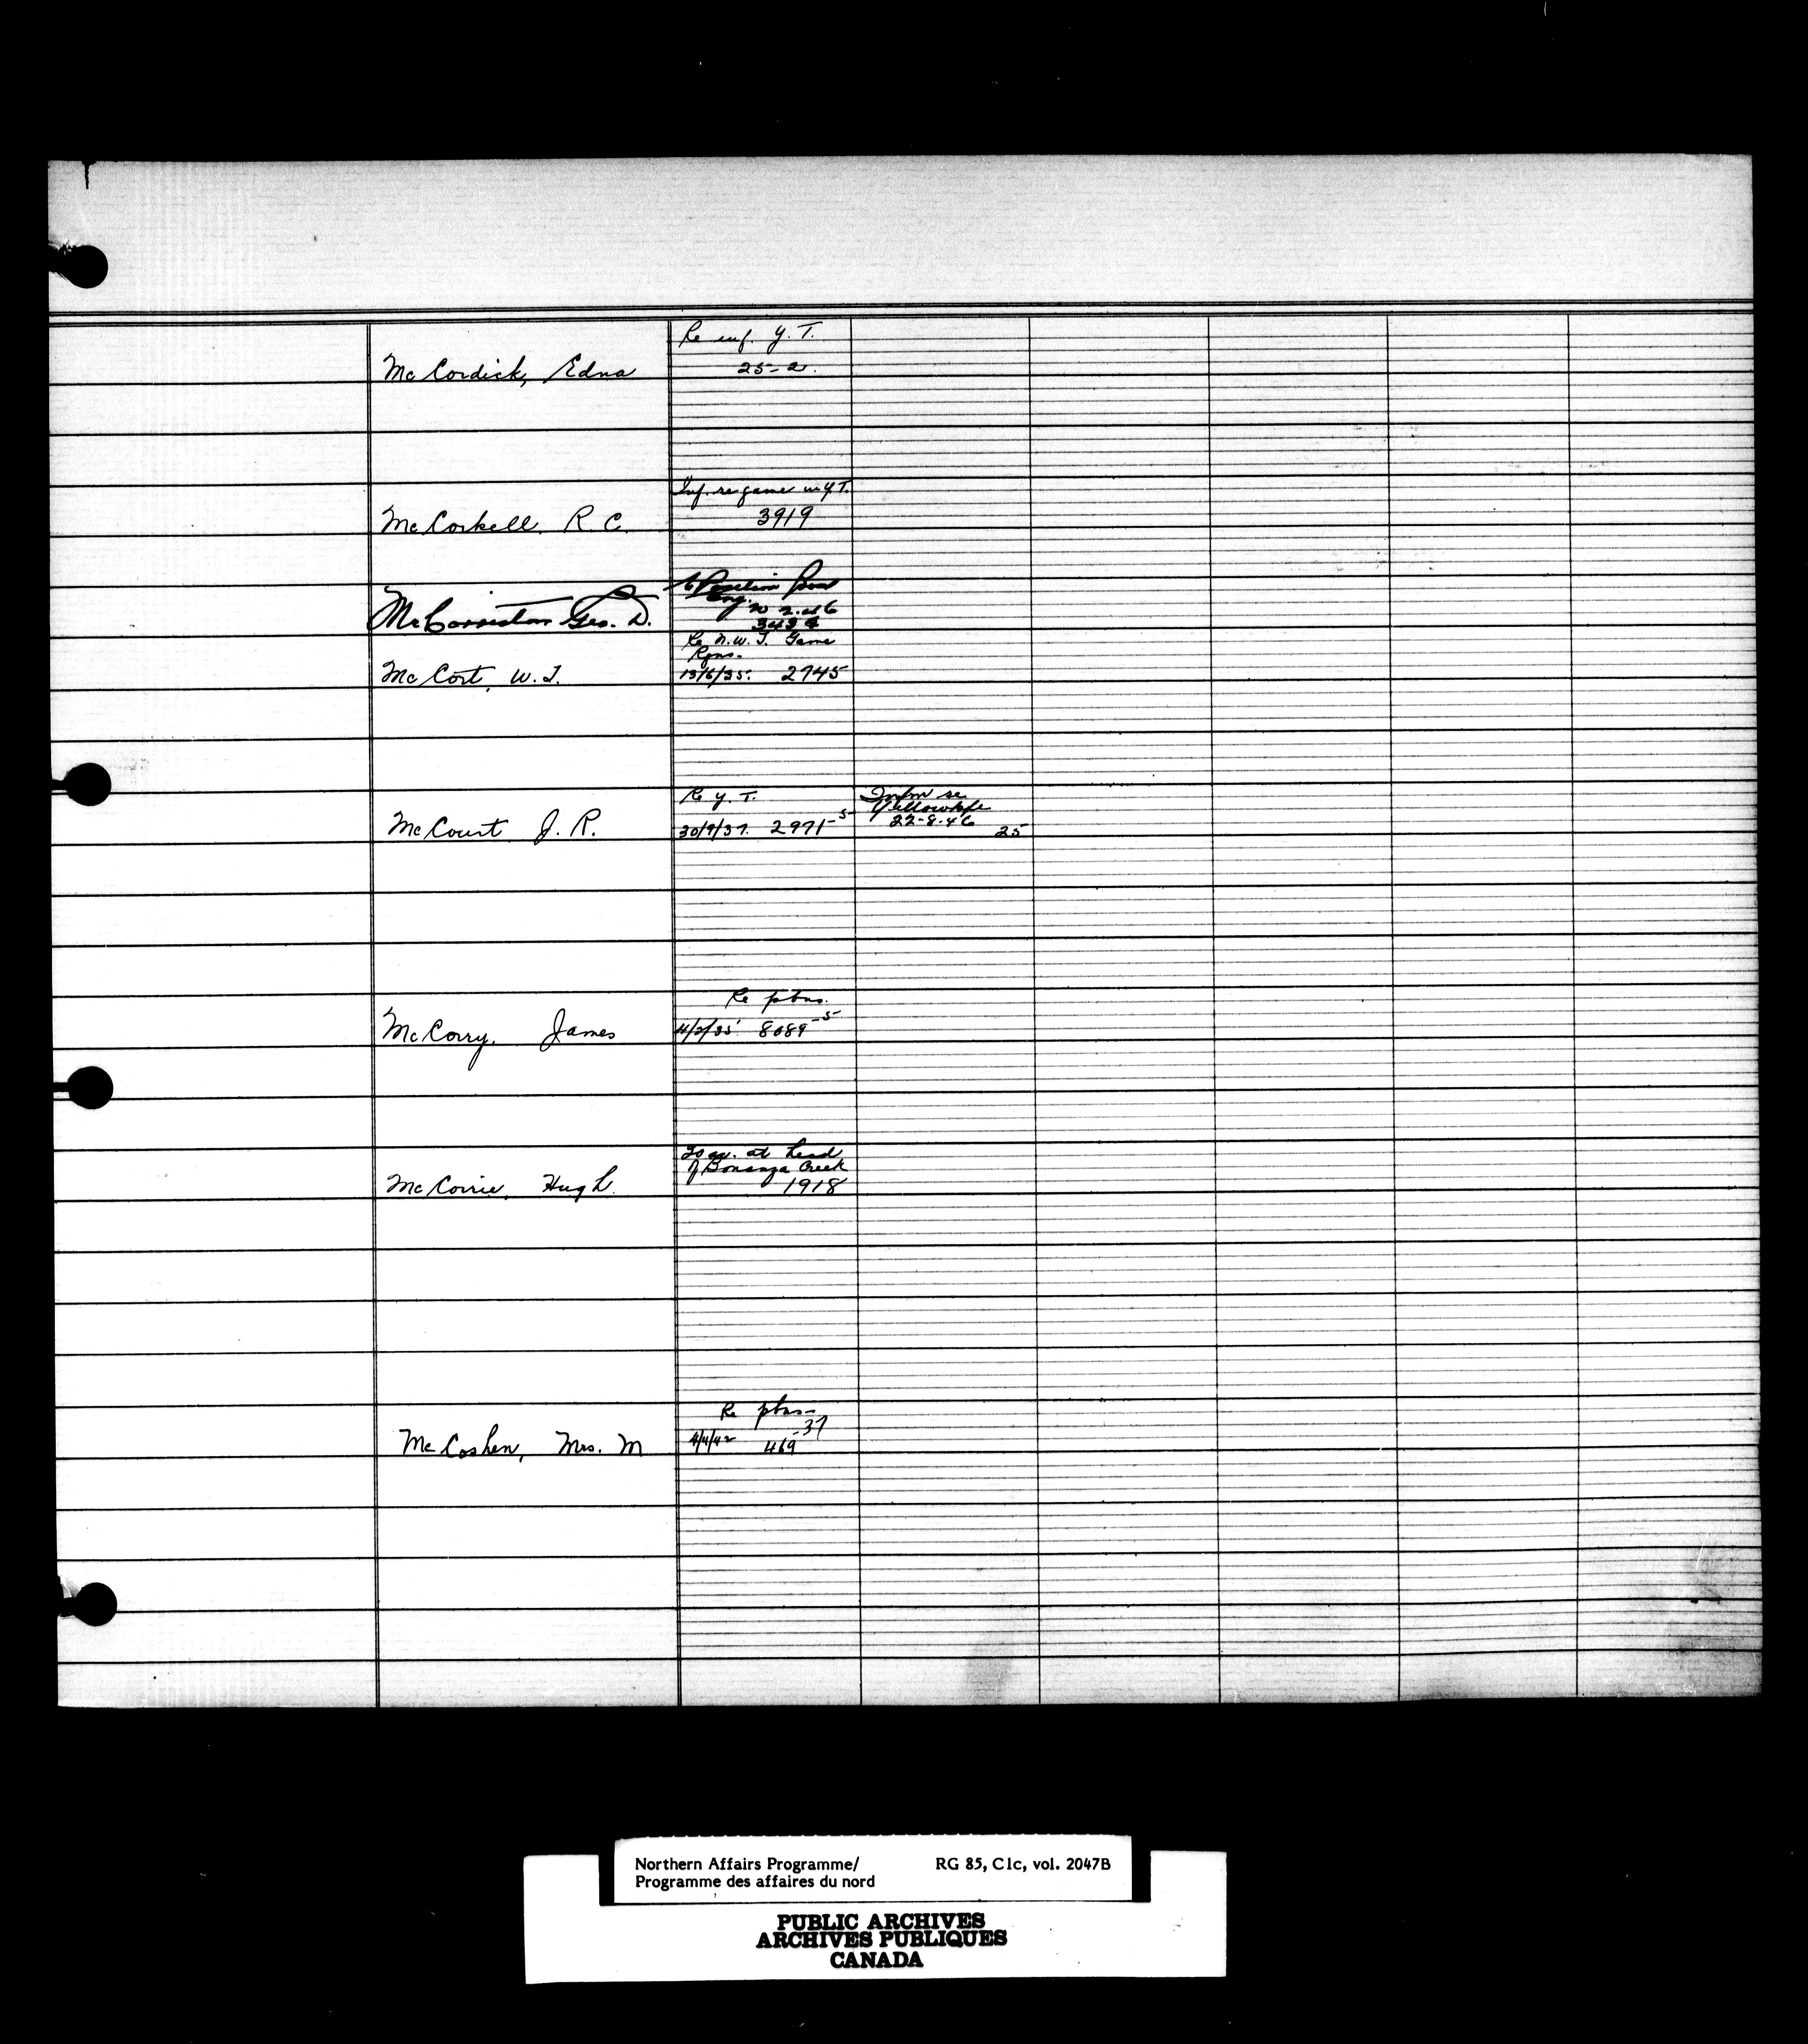 Re inf. Y.T.
McCordick, Edna 25-2.
Inf. re game in Y.T.
McCorkell, R. C. 3919
Position
Eng.
20.2.46
McCorriston Geo. D. 3434
Re N.W.T. Game
Rgns.
McCort, W.J. 13/6/35. 2745
Re Y.T. Infm re
Yellowknife
22-8-46
McCourt J. R. 30/9/37. 2971-5 25
Re ptns.
McCorry, James 11/2/35. 8089-5
20 ac. at head
of Bonanza Creek
McCorrie, Hugh. 1918
Re ptns-
McCoshen, Mrs. M 4/4/42 469-37
Northern Affairs Programme/ RG 85, C1c, vol. 2047B
Programme des affaires du nord
PUBLIC ARCHIVES
ARCHIVES PUBLIQUES
CANADA